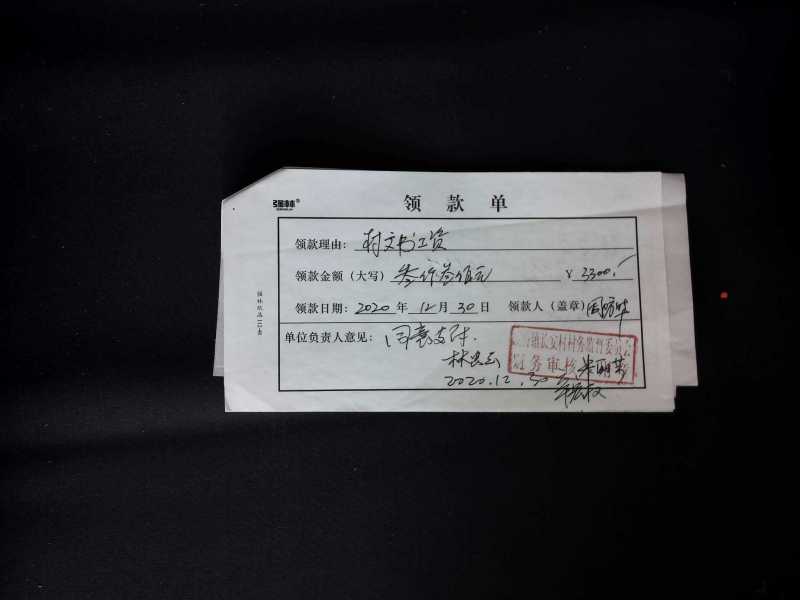 强林
领款单
领款理由：村文书工资
领款金额（大写）叁仟叁佰元 ¥ 3300.-
领款日期：2020 年 12 月 30 日 领款人（盖章）周
单位负责人意见：同意支付.
镇长安村村务监督委员会
财务审核
林忠云
2020.12.30
强林纸品